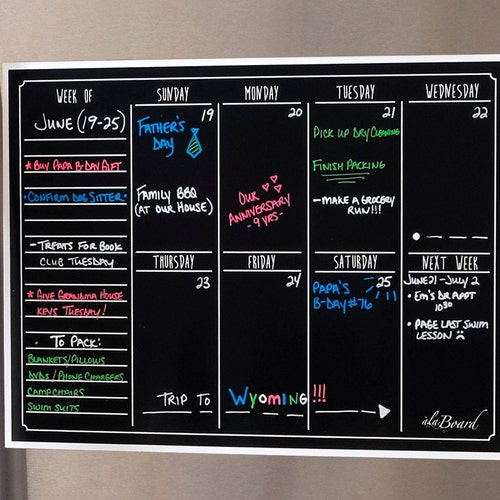 WEEK OF
JUNE (19-25)
* BUY PAPA B-DAY GIFT
• CONFIRM DOG SITTER •
- TREATS FOR BOOK
CLUB TUESDAY
* GIVE GRANDMA HOUSE
KEYS TUESDAY!
• TO PACK:
BLANKETS/PILLOWS
DVDS / PHONE CHARGERS
CAMP CHAIRS
SWIM SUITS
SUNDAY
19
FATHER'S
DAY
FAMILY BBQ
(AT OUR HOUSE)
MONDAY
20
OUR
ANNIVERSARY
- 9 YRS -
TUESDAY
21
PICK UP DRY CLEANING
FINISH PACKING
- MAKE A GROCERY
RUN!!!
WEDNESDAY
22
THURSDAY
23
FRIDAY
24
SATURDAY
25
PAPA'S
B-DAY #76
TRIP TO WYOMING!!!
NEXT WEEK
JUNE 21 - JULY 2
• EM'S DR APPT
10:30
• PAGE LAST SWIM
LESSON ☹
àlaBoard